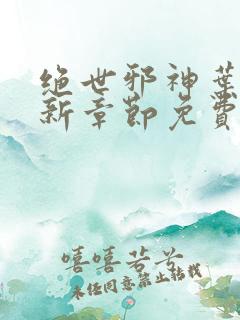 绝世邪神叶
新章节免费
嘻嘻若兮
未经同意禁止转载